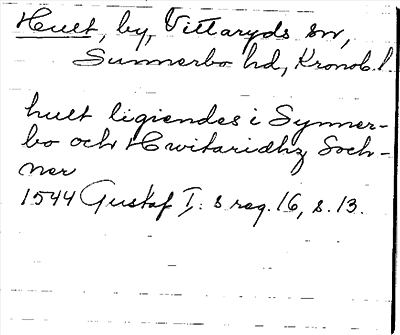 Hult, by, Vittaryds sn,
Sunnerbo hd, Kronob. l.
hult ligiendes i Synner-
bo och Hwitaridhz Soch-
ner
1544 Gustaf I: s reg. 16, s. 13.